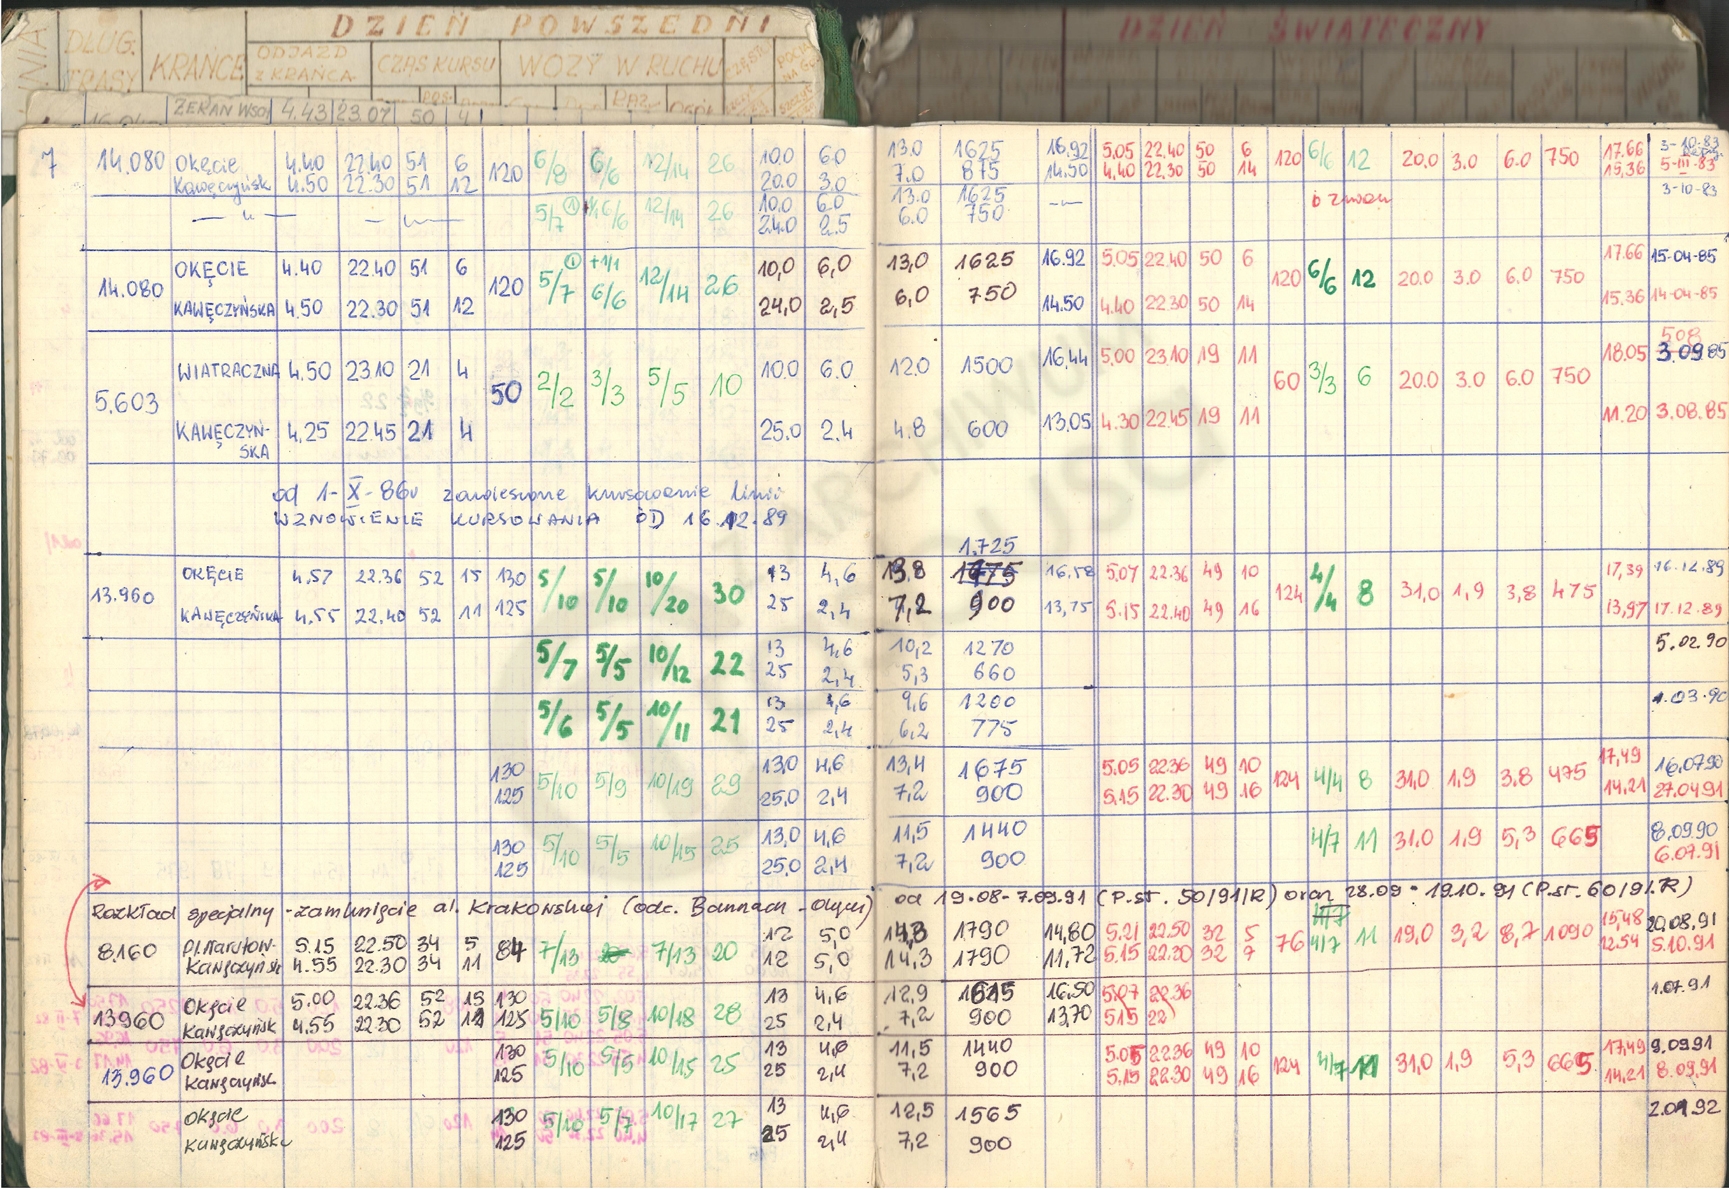 DZIEŃ POWSZEDNI DZIEŃ ŚWIĄTECZNY
DŁUG. TRASY KRAŃCE ODJAZD Z KRAŃCA CZAS KURSU WOZY W RUCHU
ŻERAŃ WSCH 4.43 23.07 50 4
7 14.080 Okęcie 4.40 22.40 51 6 120 6/8 6/6 12/14 26 10.0 6.0 13.0 1625 16.92 5.05 22.40 50 6 120 6/6 12 20.0 3.0 6.0 750 17.66 3-10-83
Kawęczyńsk 4.50 22.30 51 12 20.0 3.0 7.0 875 14.50 4.40 22.30 50 14 15.36 5-III-83
— " — — " — 5/7 6/6 12/14 26 10.0 6.0 13.0 1625 —"— 3-10-83
24.0 2.5 6.0 750
14.080 OKĘCIE 4.40 22.40 51 6 120 5/7 +1/1 6/6 12/14 26 10,0 6,0 13,0 1625 16.92 5.05 22.40 50 6 120 6/6 12 20.0 3.0 6.0 750 17.66 15-04-85
KAWĘCZYŃSKA 4.50 22.30 51 12 24,0 2,5 6,0 750 14.50 4.40 22.30 50 14 15.36 14-04-85
508
5.603 WIATRACZNA 4.50 23.10 21 4 50 2/2 3/3 5/5 10 10.0 6.0 12.0 1500 16.44 5.00 23.10 19 11 60 3/3 6 20.0 3.0 6.0 750 18.05 3.09.85
KAWĘCZYŃ-SKA 4.25 22.45 21 4 25.0 2.4 4.8 600 13.05 4.30 22.45 19 11 11.20 3.08.85
od 1-X-86r zawieszone kursowanie linii
WZNOWIENIE KURSOWANIA OD 16.12.89
1.725
13.960 OKĘCIE 4.57 22.36 52 15 130 5/10 5/10 10/20 30 13 4,6 13.8 16,58 5.07 22.36 49 10 124 4/4 8 31,0 1,9 3,8 475 17,39 16.12.89
KAWĘCZYŃSKA 4.55 22.40 52 11 125 25 2,4 7,2 900 13,75 5.15 22.40 49 16 13,97 17.12.89
5/7 5/5 10/12 22 13 4,6 10,2 1270 5.02.90
25 2,4 5,3 660
5/6 5/5 10/11 21 13 4,6 9,6 1200 1.03.90
25 2,4 6,2 775
130 5/10 5/9 10/19 29 13,0 4,6 13,4 1675 5.05 22.36 49 10 124 4/4 8 31,0 1,9 3,8 475 17,49 16.07.90
125 25,0 2,4 7,2 900 5.15 22.30 49 16 14,21 27.04.91
130 5/10 5/5 10/15 25 13,0 4,6 11,5 1440 4/7 11 31,0 1,9 5,3 665 8.09.90
125 25,0 2,4 7,2 900 6.07.91
Rozkład specjalny - zamknięcie al. Krakowskiej (odc. Bannach - Okęcie) od 19.08-7.09.91 (P.st. 50/91/R) oraz 28.09-19.10.91 (P.st. 60/91.R)
8.160 Pl. Narutow. 5.15 22.50 34 5 84 7/13 7/13 20 12 5,0 14,3 1790 14,80 5.21 22.50 32 5 76 4/7 11 19,0 3,2 8,7 1090 15,48 20.08.91
Kawęczyńsk 4.55 22.30 34 11 12 5,0 14,3 1790 11,72 5.15 22.30 32 7 12.54 5.10.91
13960 Okęcie 5.00 22.36 52 15 130 5/10 5/8 10/18 28 13 4,6 12,9 1615 16.50 5.07 22.36 1.07.91
Kawęczyńsk 4.55 22.30 52 125 25 2,4 7,2 900 13,70 5.15 22
13.960 Okęcie 130 5/10 5/5 10/15 25 13 4,6 11,5 1440 5.05 22.36 49 10 124 4/7 11 31,0 1,9 5,3 665 17,49 9.09.91
Kawęczyńsk 125 25 2,4 7,2 900 5.15 22.30 49 16 14,21 8.09.91
Okęcie 130 5/10 5/7 10/17 27 13 4,6 12,5 1565 2.01.92
Kawęczyńska 125 25 2,4 7,2 900